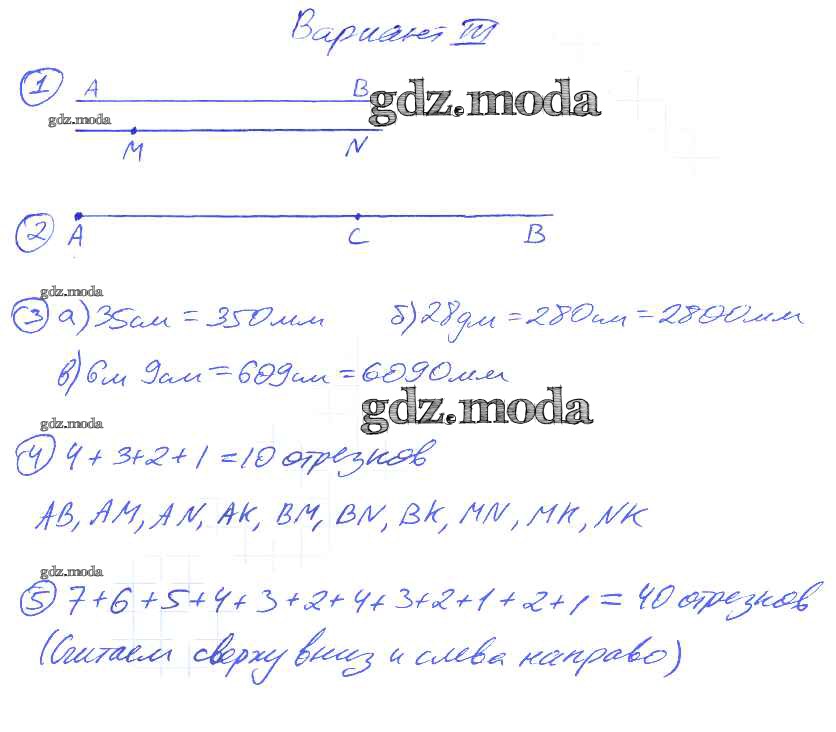 Вариант III
1 A B gdz.moda
gdz.moda
M N
2 A C B
gdz.moda
3 а) 35см = 350мм б) 28дм = 280см = 2800мм
в) 6м 9см = 609см = 6090мм
gdz.moda
gdz.moda
4 4 + 3 + 2 + 1 = 10 отрезков
AB, AM, AN, AK, BM, BN, BK, MN, MK, NK
gdz.moda
5 7 + 6 + 5 + 4 + 3 + 2 + 4 + 3 + 2 + 1 + 2 + 1 = 40 отрезков
(Считаем сверху вниз и слева направо)